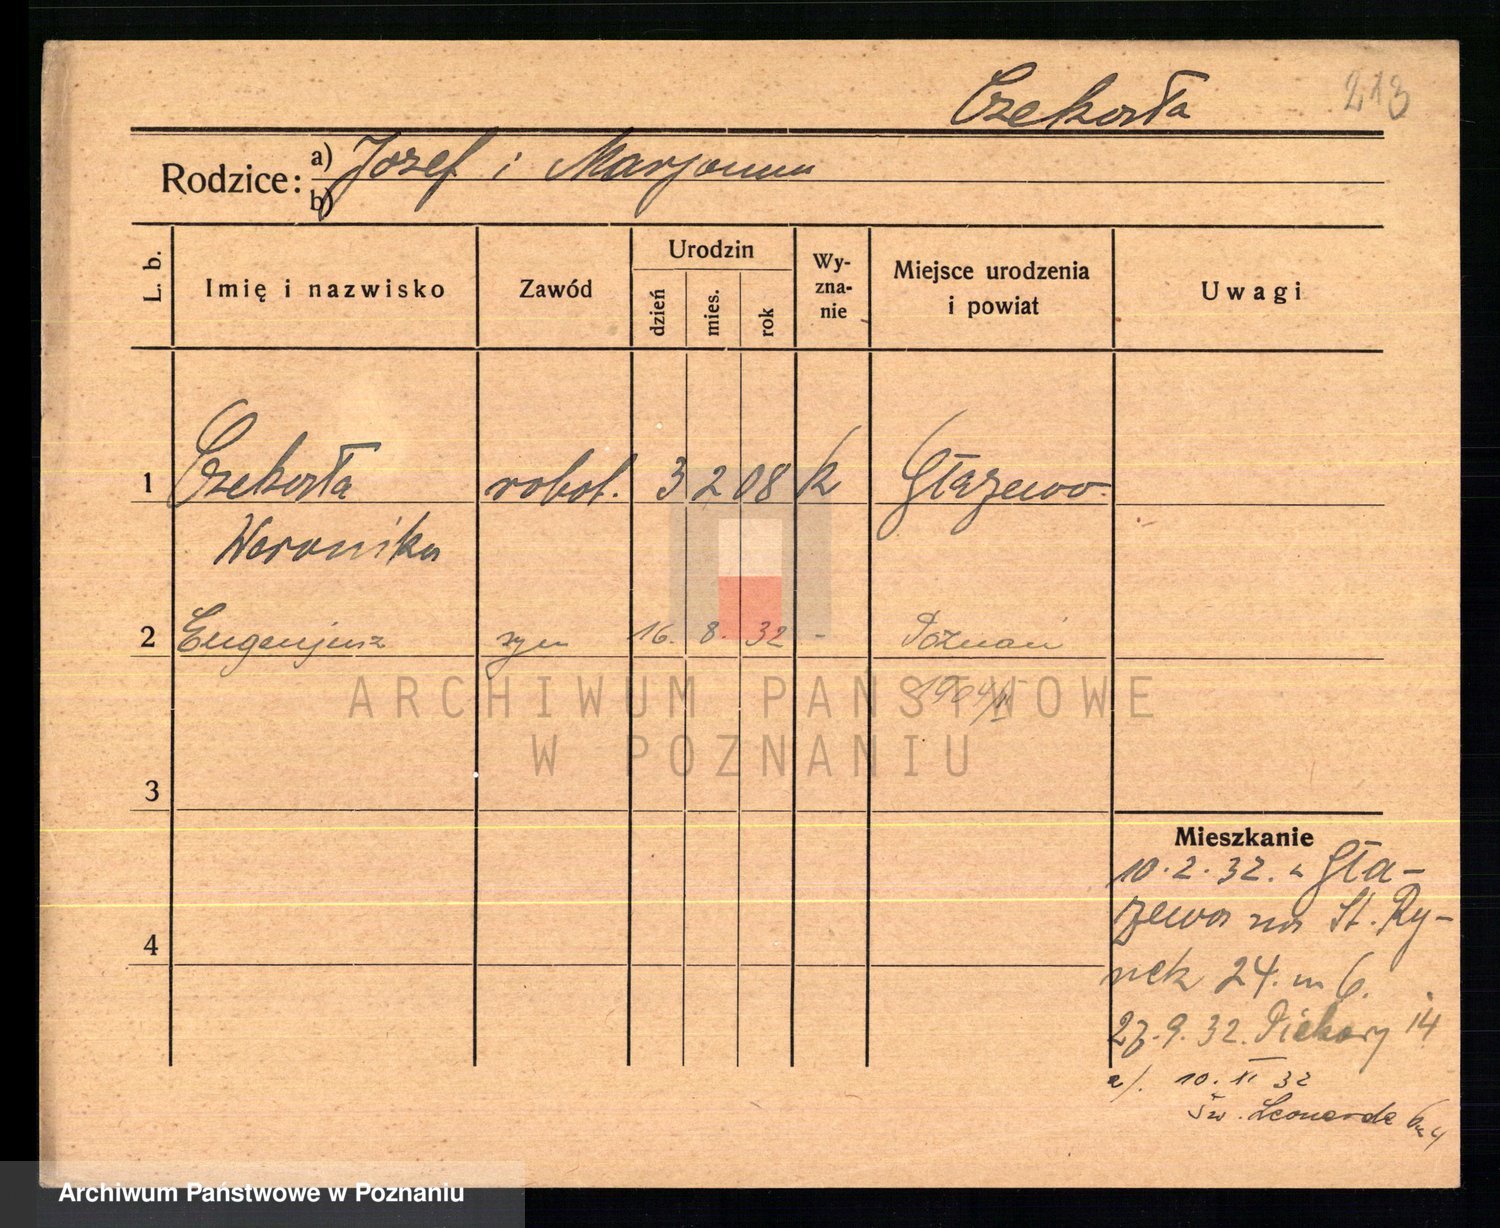 Czekała
213
Rodzice: a) Józef i Marjanna
b)
L. b.
Imię i nazwisko
Zawód
Urodzin
dzień
mies.
rok
Wy-
zna-
nie
Miejsce urodzenia
i powiat
Uwagi
1 Czekała robot. 3 2 08 k Głażewo
Weronika
2 Eugenjusz syn 16. 8. 32 - Poznań
ARCHIWUM PAŃSTWOWE
W POZNANIU
3
4
Mieszkanie
10.2.32. z Gła-
żewa na St. Ry-
nek 24. m 6.
27.9.32. Piekary 14
a/. 10. XI 32
Św. Leonarda
Archiwum Państwowe w Poznaniu